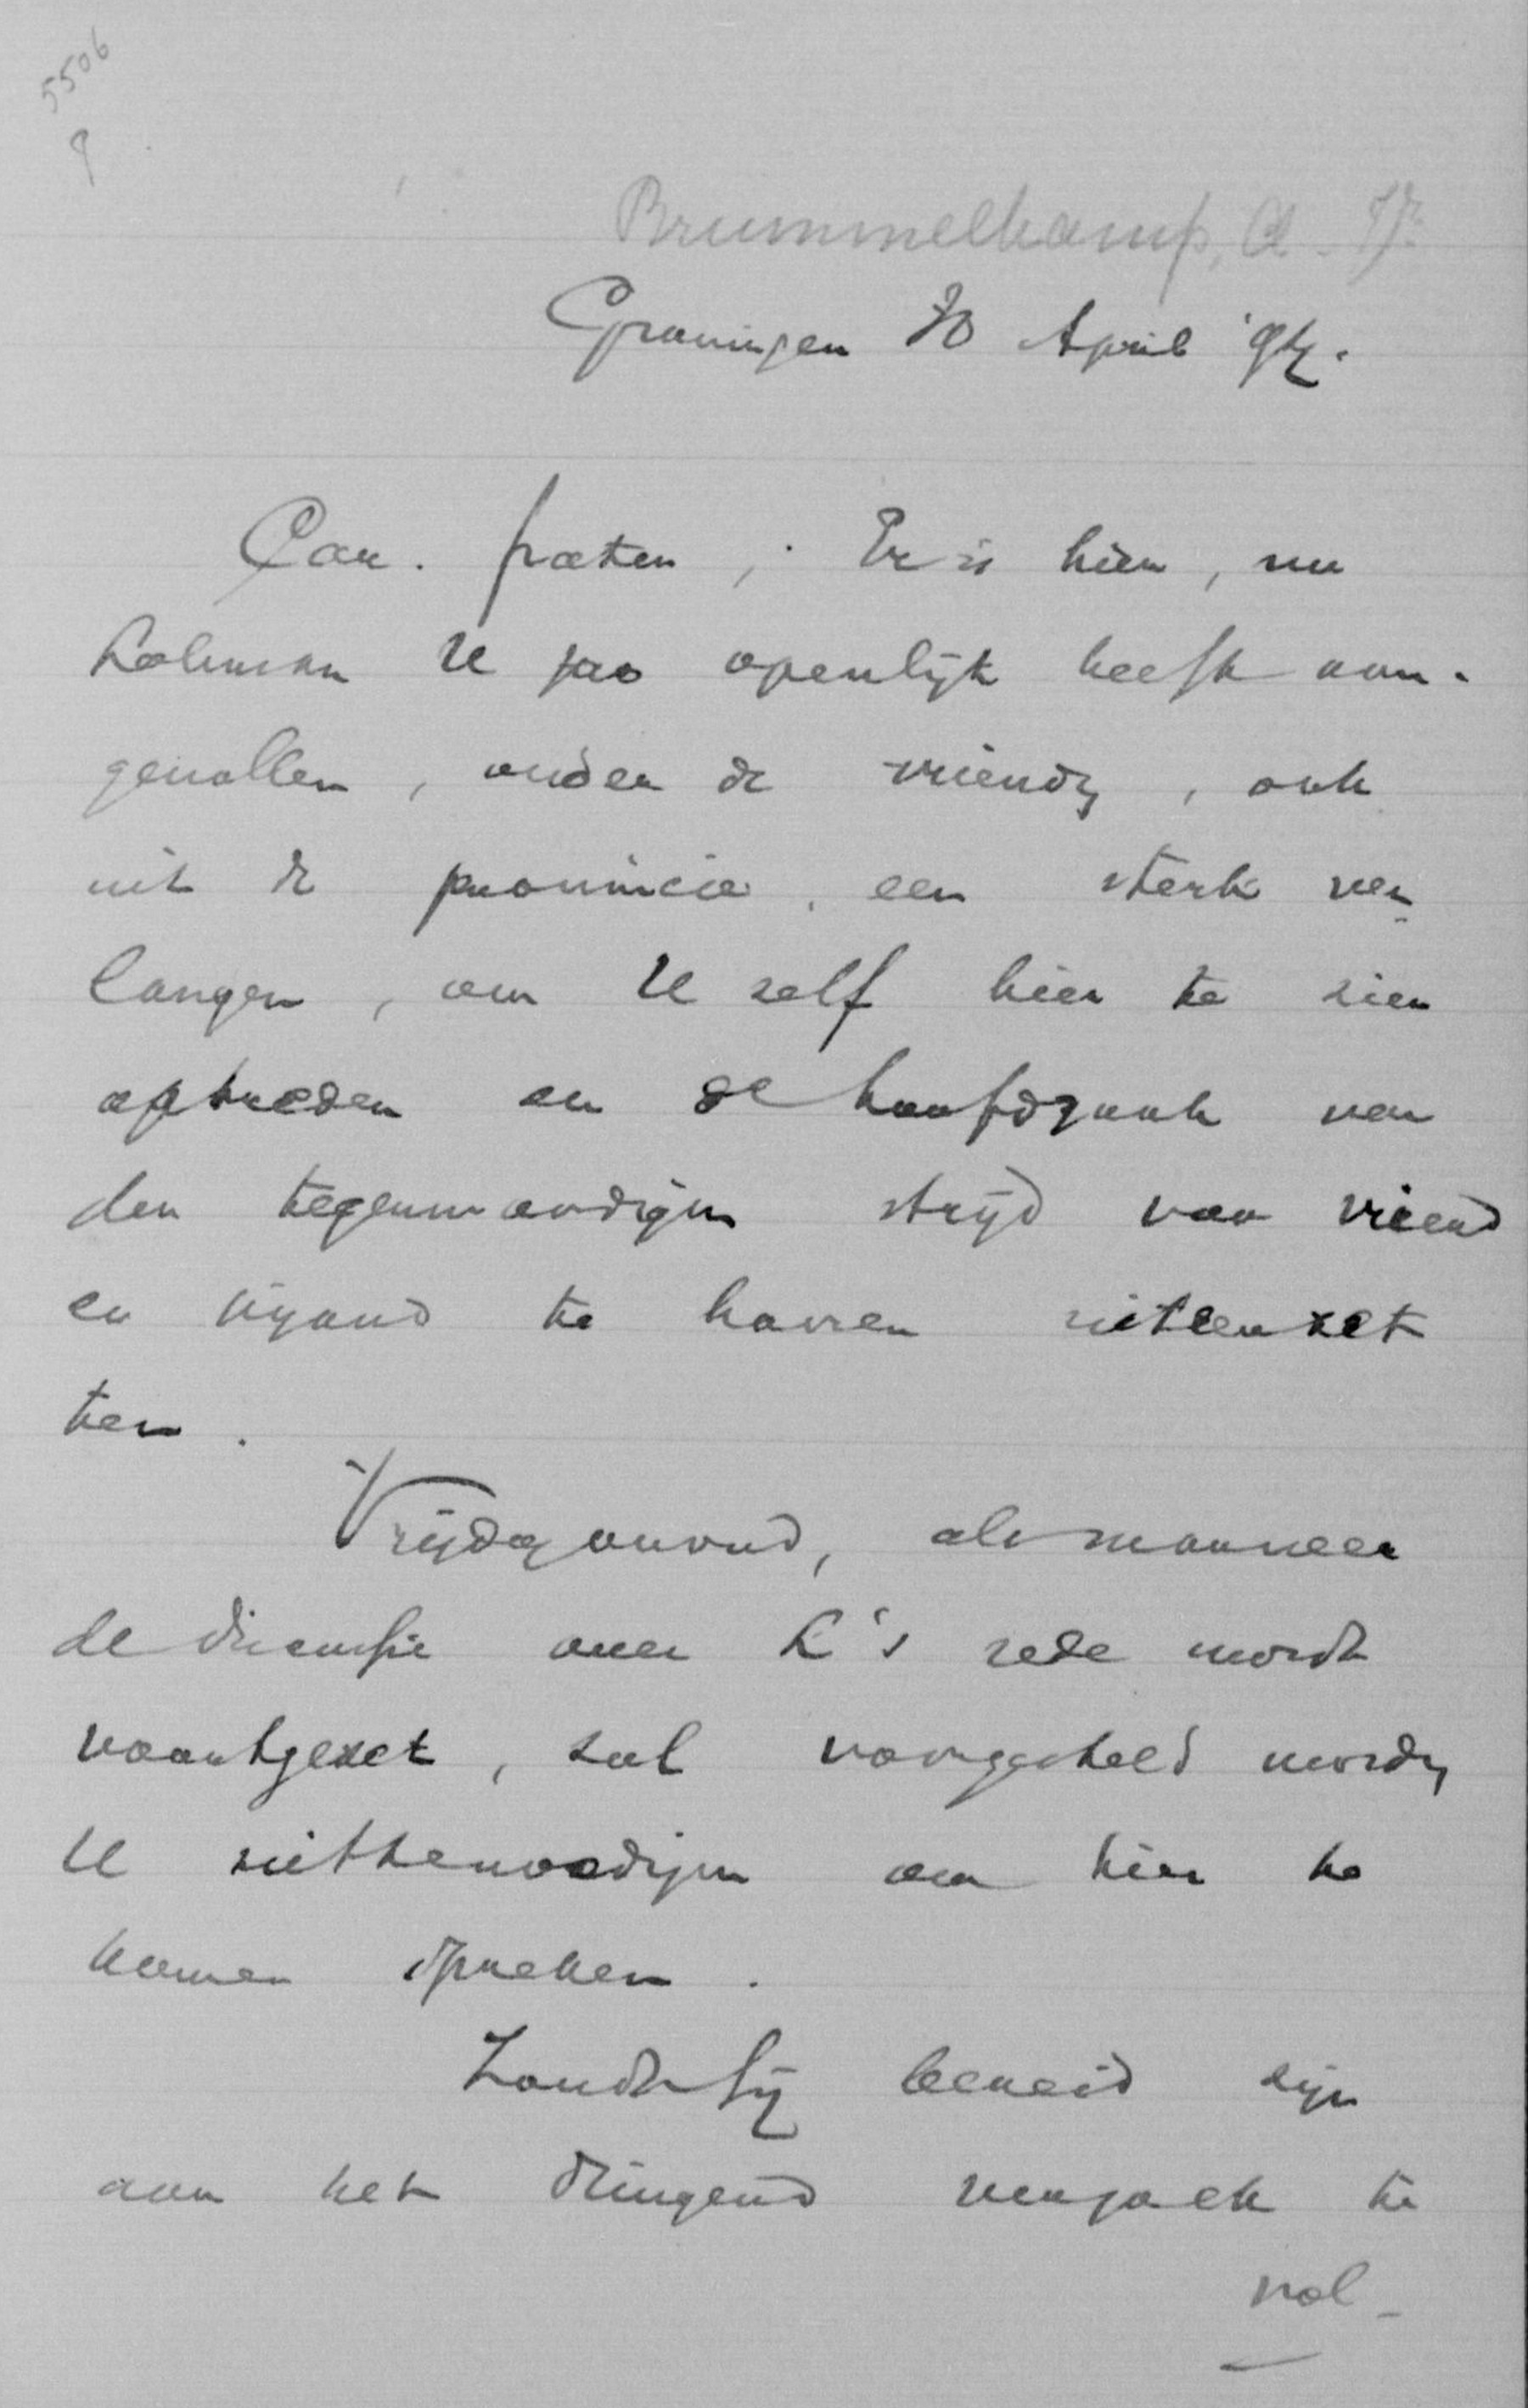 5506
Brummelkamp, A. Jr.
Groningen 30 April '94.
Car. frater, Er is hier, nu
Lohman U zoo openlijk heeft aan-
gevallen, onder de vrienden, ook
uit de provincie, een sterk ver-
langen, om U zelf hier te zien
optreden en de hoofdzaak van
den tegenwoordigen strijd voor vriend
en vijand te hooren uiteenzet
ten.
Vrijdag avond, als wanneer
de discussie over L's rede wordt
voortgezet, zal voorgesteld worden
U uittenoodigen om hier te
komen spreken.
Zoudt Gij bereid zijn
aan het dringend verzoek te
vol-